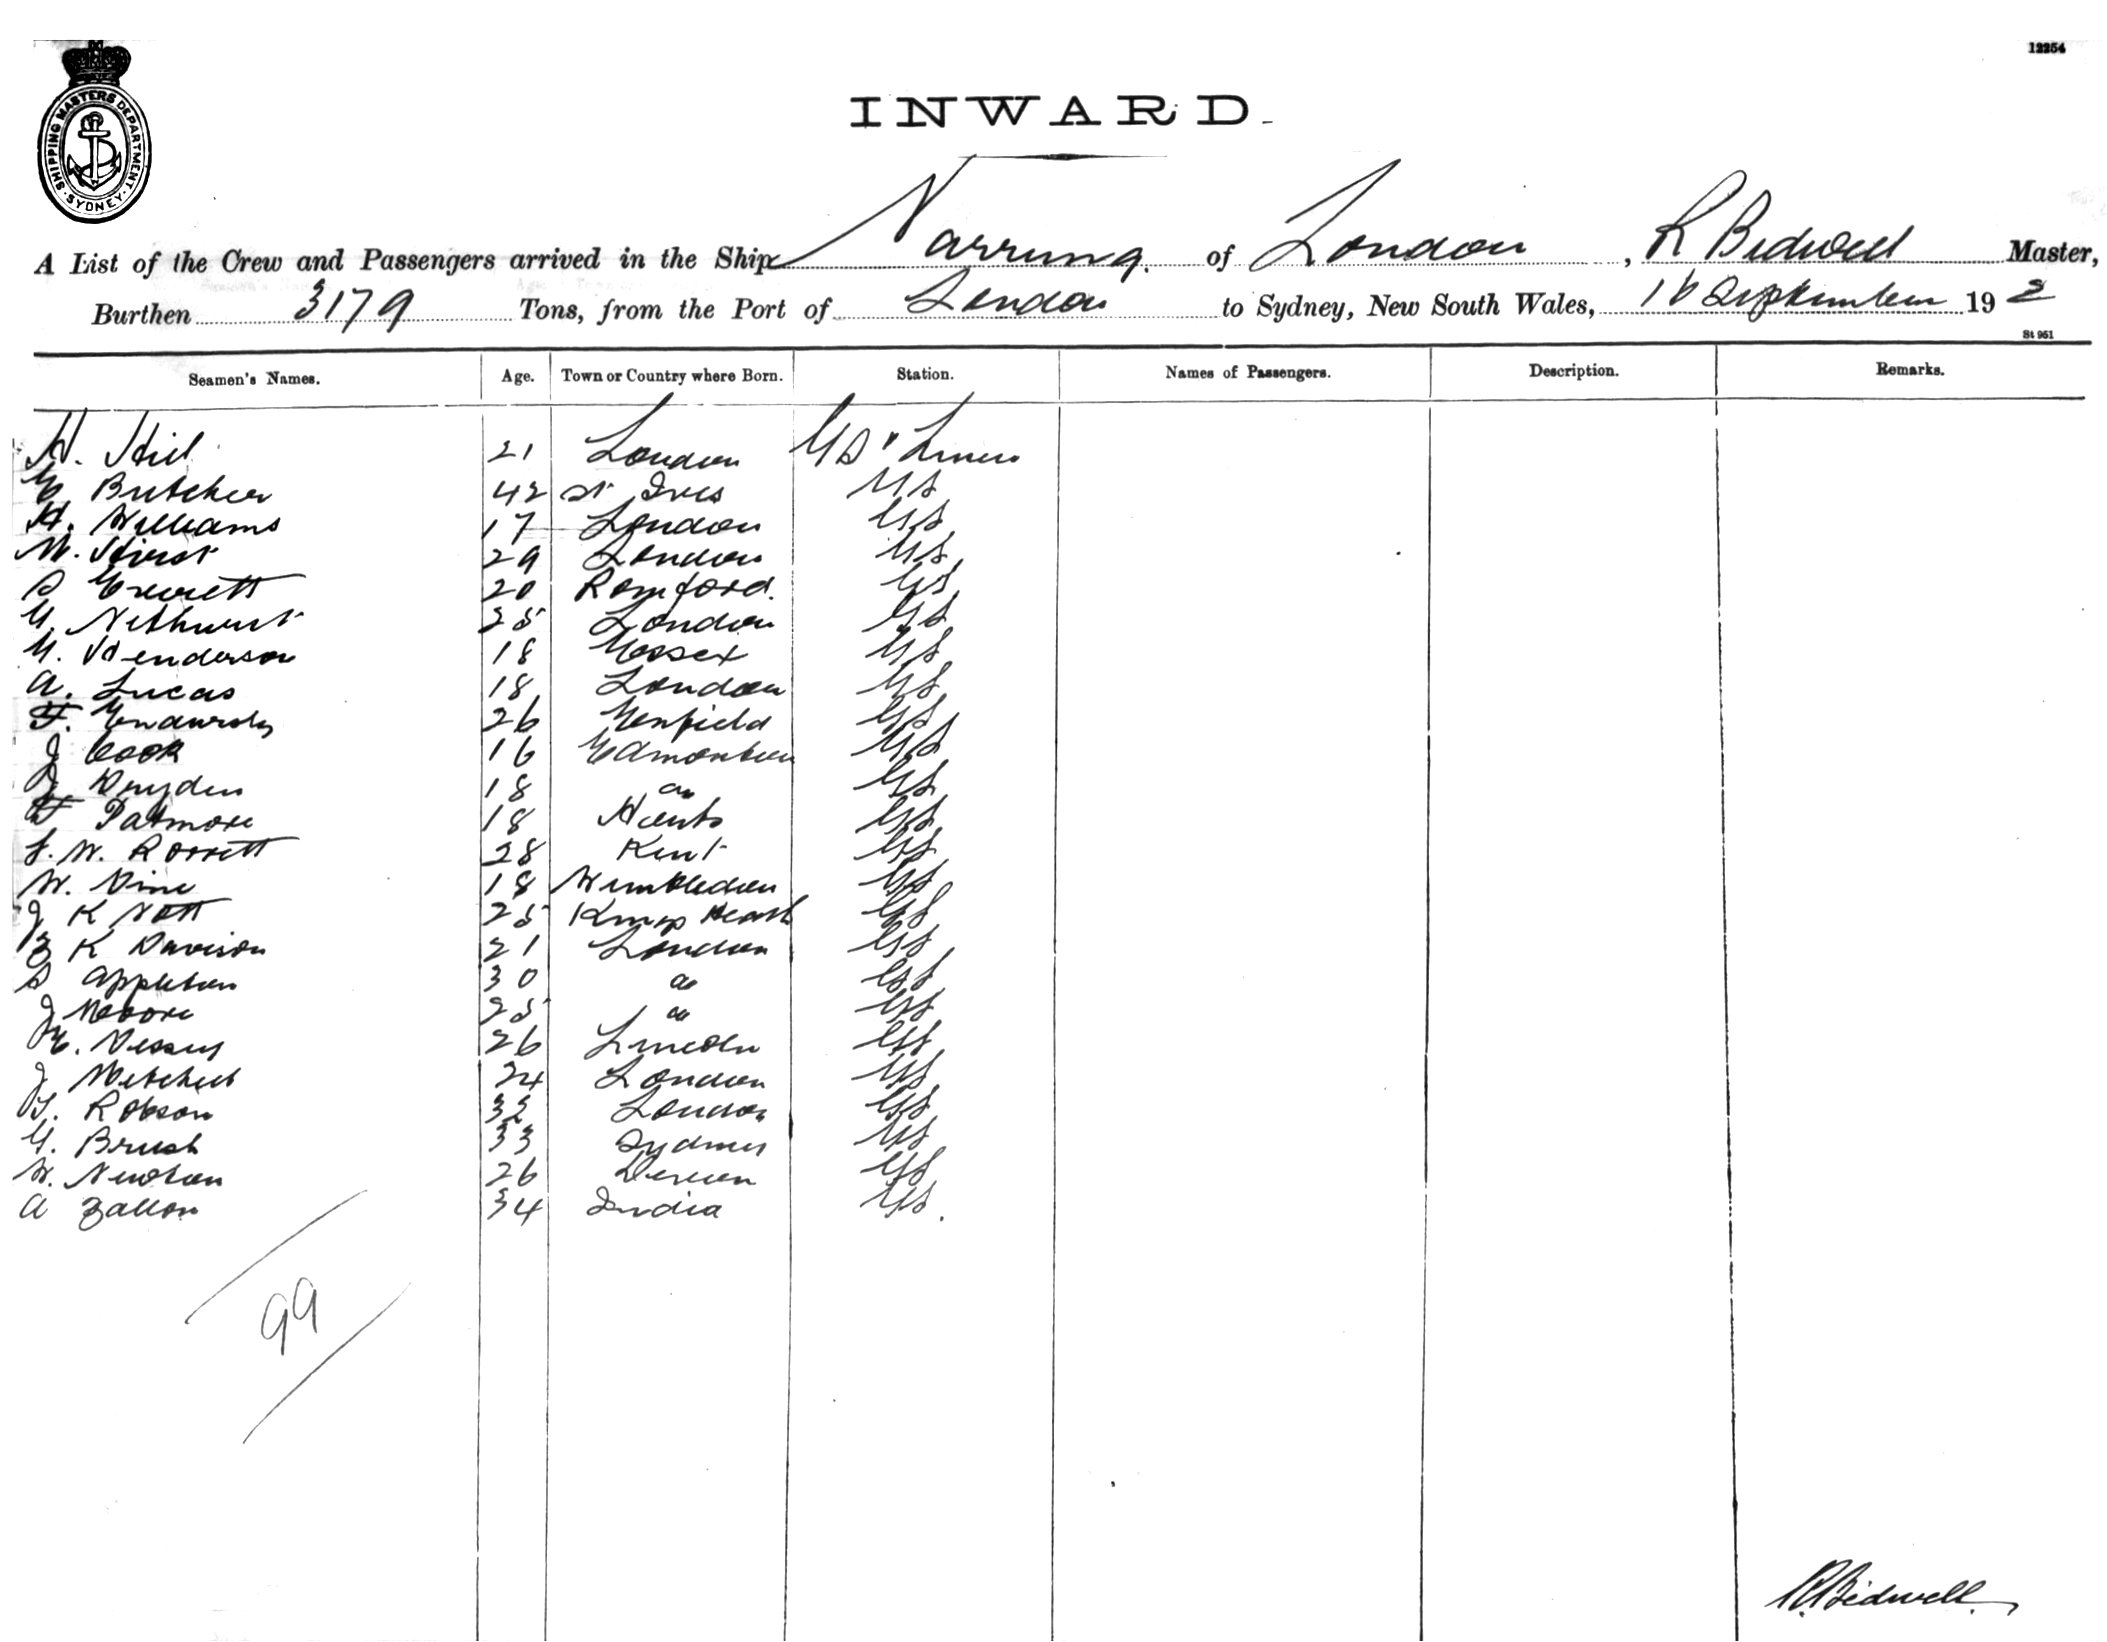 12254
SHIPPING MASTERS DEPARTMENT
SYDNEY
INWARD.
A List of the Crew and Passengers arrived in the Ship Narrung. of London, R Bidwell Master,
Burthen 3179 Tons, from the Port of London to Sydney, New South Wales, 16 September 19 2
St 951
Seamen's Names. Age. Town or Country where Born. Station. Names of Passengers. Description. Remarks.
H. Hill 21 London
E Butcher 42 St Ives GS
H. Williams 17 London GS
W. Hirst 29 London GS
S Everett 20 Romford. GS
G. 25 London GS
G. Henderson 18 Essex GS
A. Lucas 18 London GS
F. 26 Enfield GS
J Cook 16 Edmonton GS
J Dryden 18 do GS
F Patmore 18 GS
W. 28 Kent GS
W. Vine 18 Wimbledon GS
J K Nott 25 GS
K Davison 21 London GS
S Appleton 30 do GS
J Moore 25 do GS
E. Vessey 26 Lincoln GS
J Mitchell 24 London GS
T. Robson 32 London GS
G. Brush 33 Sydney GS
W. Newton 26 Devon GS
A 34 India GS.
99
R Bidwell.